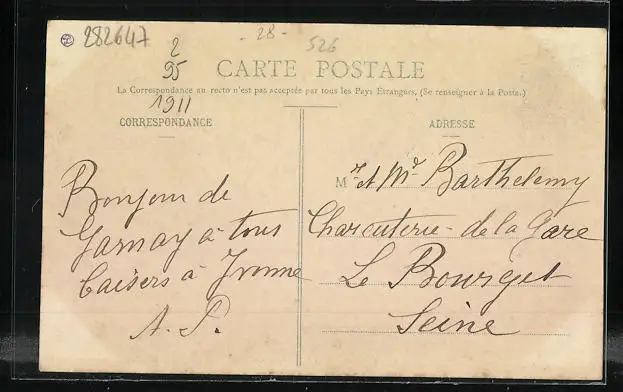 282647
2
95
- 28 -
526
CARTE POSTALE
La Correspondance au recto n'est pas acceptée par tous les Pays Étrangers. (Se renseigner à la Poste.)
1911
CORRESPONDANCE
Bonjour de
Garnay à tous
baisers à Yvonne
A. P.
ADRESSE
Mr et Md Barthelemy
Charcuterie de la Gare
Le Bourget
Seine